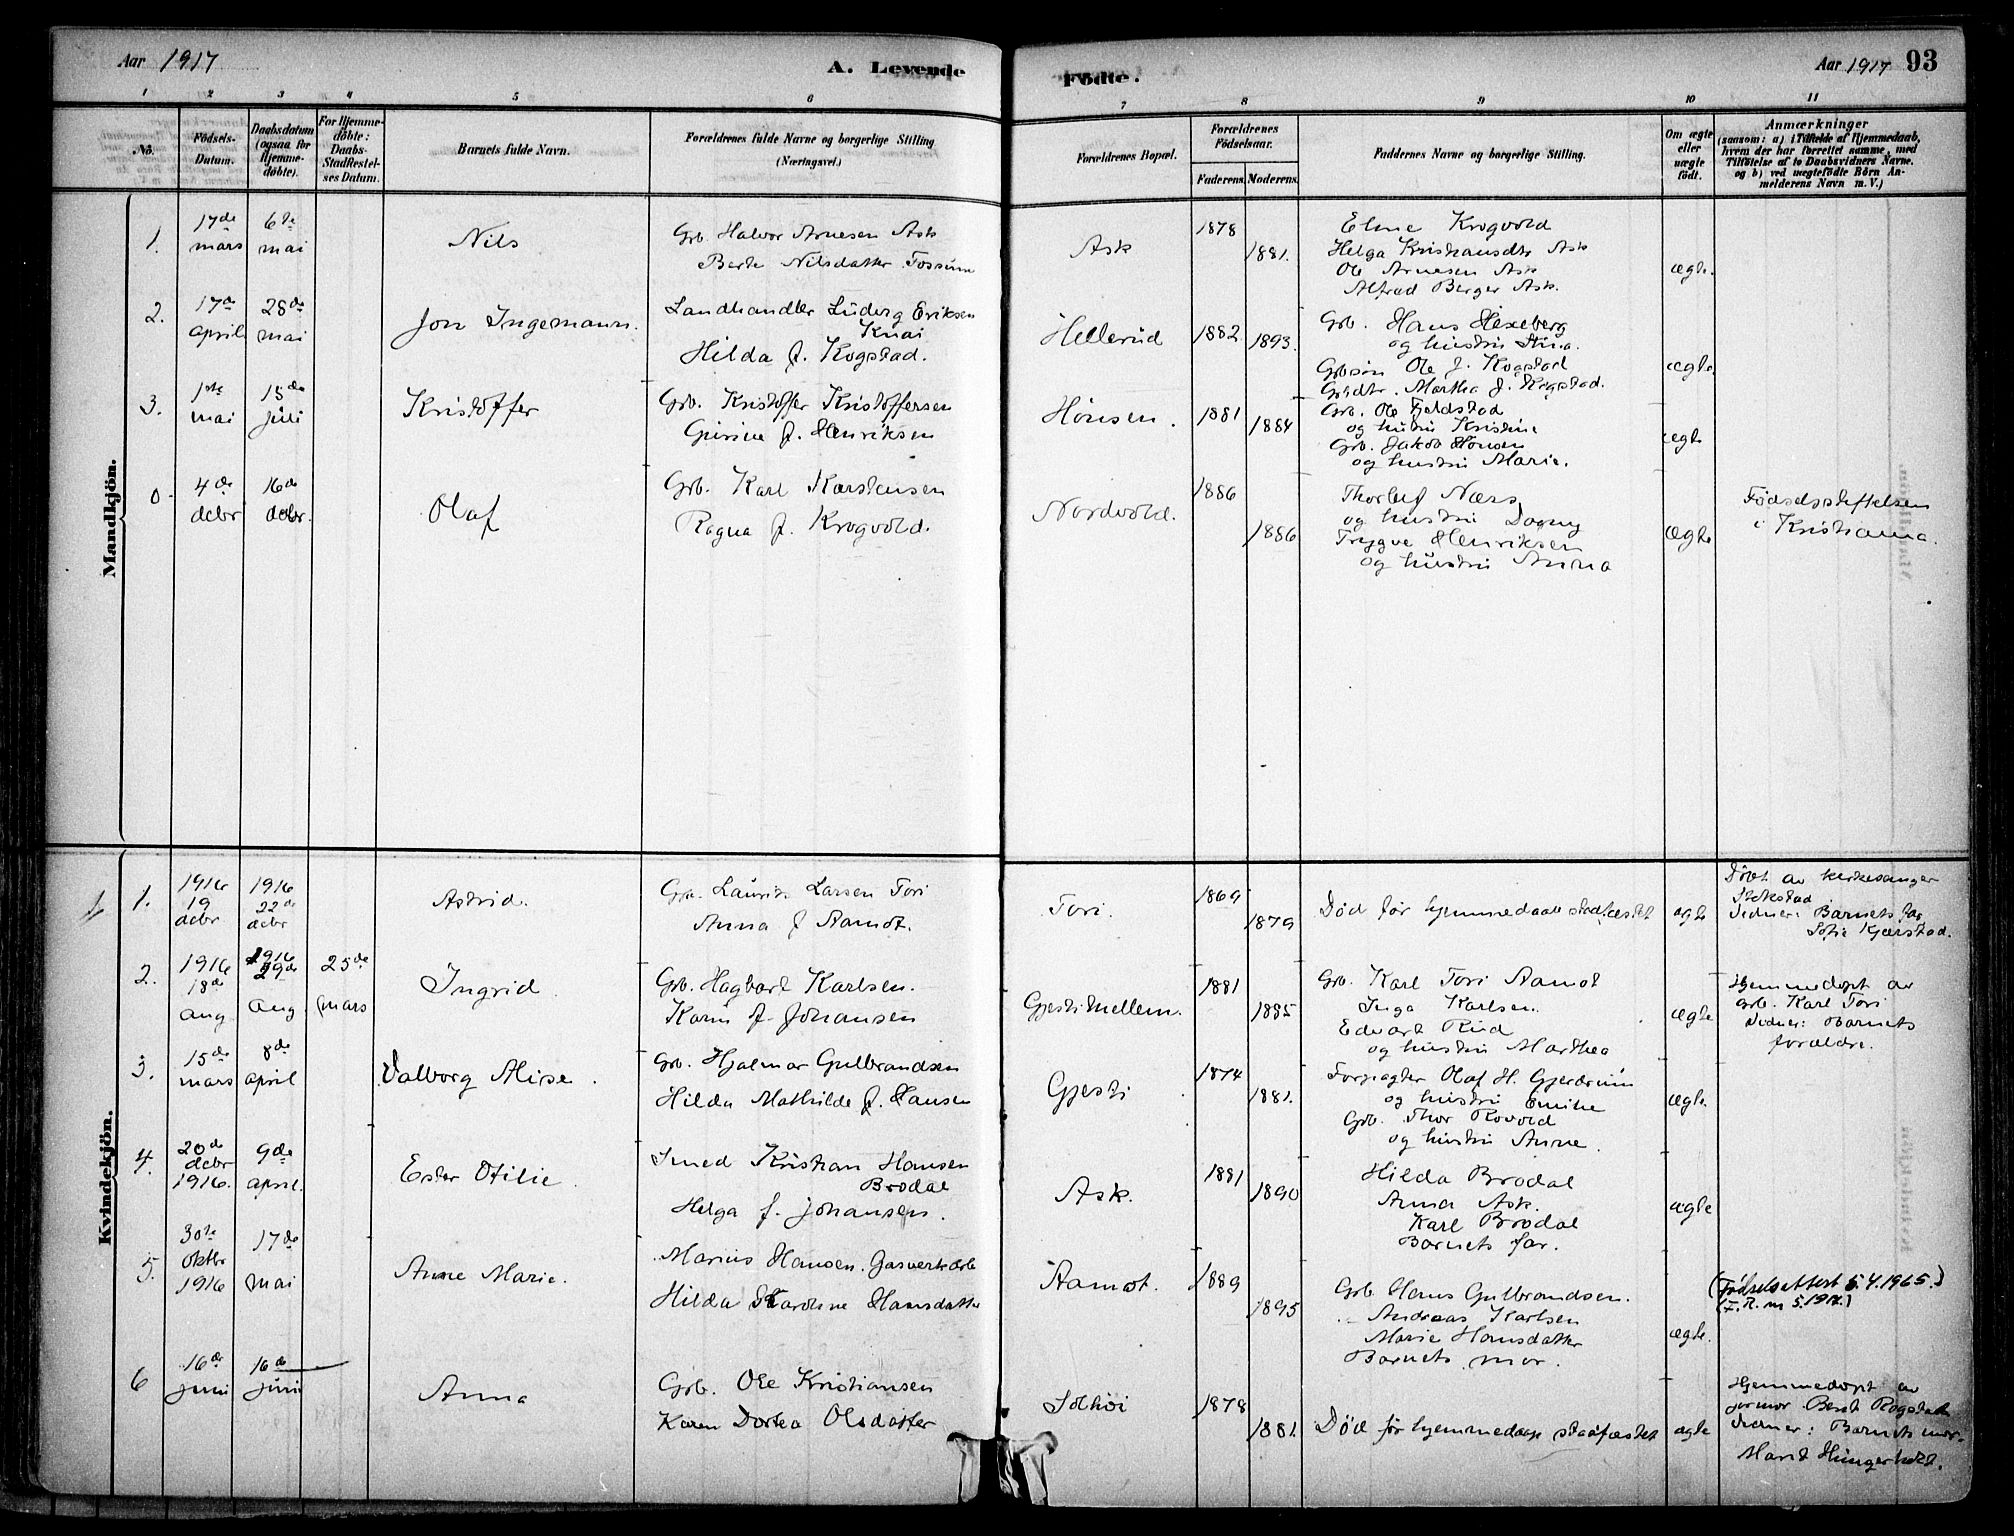 Aar 1917
A. Levende
Födte.
Aar 1917 93
1 2 3 4 5 6 7 8 9 10 11
No.
Födsels-
Datum.
Daabsdatum
(ogsaa for
Hjemme-
døbte).
For Hjemme-
døbte:
Daabs-
Stadfæstel-
ses Datum.
Barnets fulde Navn.
Forældrenes fulde Navne og borgerlige Stilling
(Næringsvei.)
Forældrenes Bopæl.
Forældrenes
Födselsaar.
Faderens. Moderens.
Faddernes Navne og borgerlige Stilling.
Om ægte
eller
uægte
födt.
Anmærkninger
(saasom: a) i Tilfælde af Hjemmedaab,
hvem der har forrettet samme, med
Tilföielse af to Daabsvidners Navne.
og b) ved uægtefödte Börn An-
melderens Navn m. V.)
Mandkjön.
1.
17de
mars
6te
mai
Nils
Grb. Halvor Arnesen Ask
Berte Nilsdatter Fossum
Ask
1878
1881.
Krogvold
Helga Kristiansdtr Ask
Ole Arnesen Ask
Alfred Berger Ask.
ægte.
2.
17de
april
28de
mai
Jon Ingemann.
Landhandler Ludvig Eriksen
Knai
Hilda f. Kogstad.
Hellerud
1882
1893.
Grb. Hans Hexeberg
og hustru Stina.
Grbsøn Ole J. Kogstad
Grbdtr. Martha J. Kogstad.
ægte
3.
1ste
mai
15de
juli
Kristoffer
Grb. Kristoffer Kristoffersen
Gurine f. Henriksen
Hønsen.
1881
1884
Grb. Ole Fjeldstad
og hustru Kristine
Grb. Jakob Hønsen
og hustru Marie.
ægte
0
4de
debr
16de
debr.
Olaf
Grb. Karl Karstensen
Ragna f. Krogvold.
Nordvold.
1886
1886
Thorleif Næss
og hustru Dagny
Trygve Henriksen
og hustru Anna
ægte
Fødselsstiftelsen
i Kristiania.
Kvindekjön.
1.
1916
19
debr
1916
22de
debr
Astrid.
Grb. Laurits Larsen Tori
Anna f Aamot.
Tori.
1869
1879
Død før hjemmedaab stadfæstet
ægte
Døbt av kirkesanger
Stokstad
Vidner: Barnets far
Sofie Kjærstad.
2.
1916
18de
aug
1916
29de
aug.
25de
mars
Ingrid
Grb. Hagbart Karlsen.
Karin f. Johansen
Gjesti mellem.
1881
1885
Grb. Karl Tori Aamot
Inga Karlsen.
Edvart Rud
og hustru Marthea
ægte
Hjemmedøpt av
grb. Karl Tori
Vidner: Barnets
forældre.
3.
15de
mars
8de
april
Valborg Alise.
Grb. Hjalmar Gulbrandsen
Hilda Mathilde f. Hansen
Gjesti
1874
1881.
Forpagter Olaf H. Gjerdrum
og hustru Emilie
Grb. Thor Rovold
og hustru Anne.
ægte.
4.
20de
debr
1916.
9de
april.
Ester Otilie.
Smed Kristian Hansen
Brodal
Helga f. Johansen.
Ask.
1881
1890
Hilda Brodal
Anna Ask.
Karl Brodal
Barnets far.
ægte
5.
30te
oktbr
1916
17de
mai
Anne Marie.
Marius Hansen. Gasverksarb
Hilda Karoline Hansdatter
Aamot.
1889
1895
Grb Hans Gulbrandsen.
" Andreas Karlsen
Marie Hansdatter
Barnets mor.
ægte.
(Fødselsattest 5.4.1965.)
(F.R. nr 5.1917.)
6
16de
juni
16de
juni
Anna
Grb. Ole Kristiansen
Karen Dortea Olsdatter
Solhøi
1878
1881.
Død før hjemmedaap stadfæstet
ægte
Hjemmedøpt av
jormor Beret Rogstad
Vidner: Barnets mor.
Marit Hungerholt.